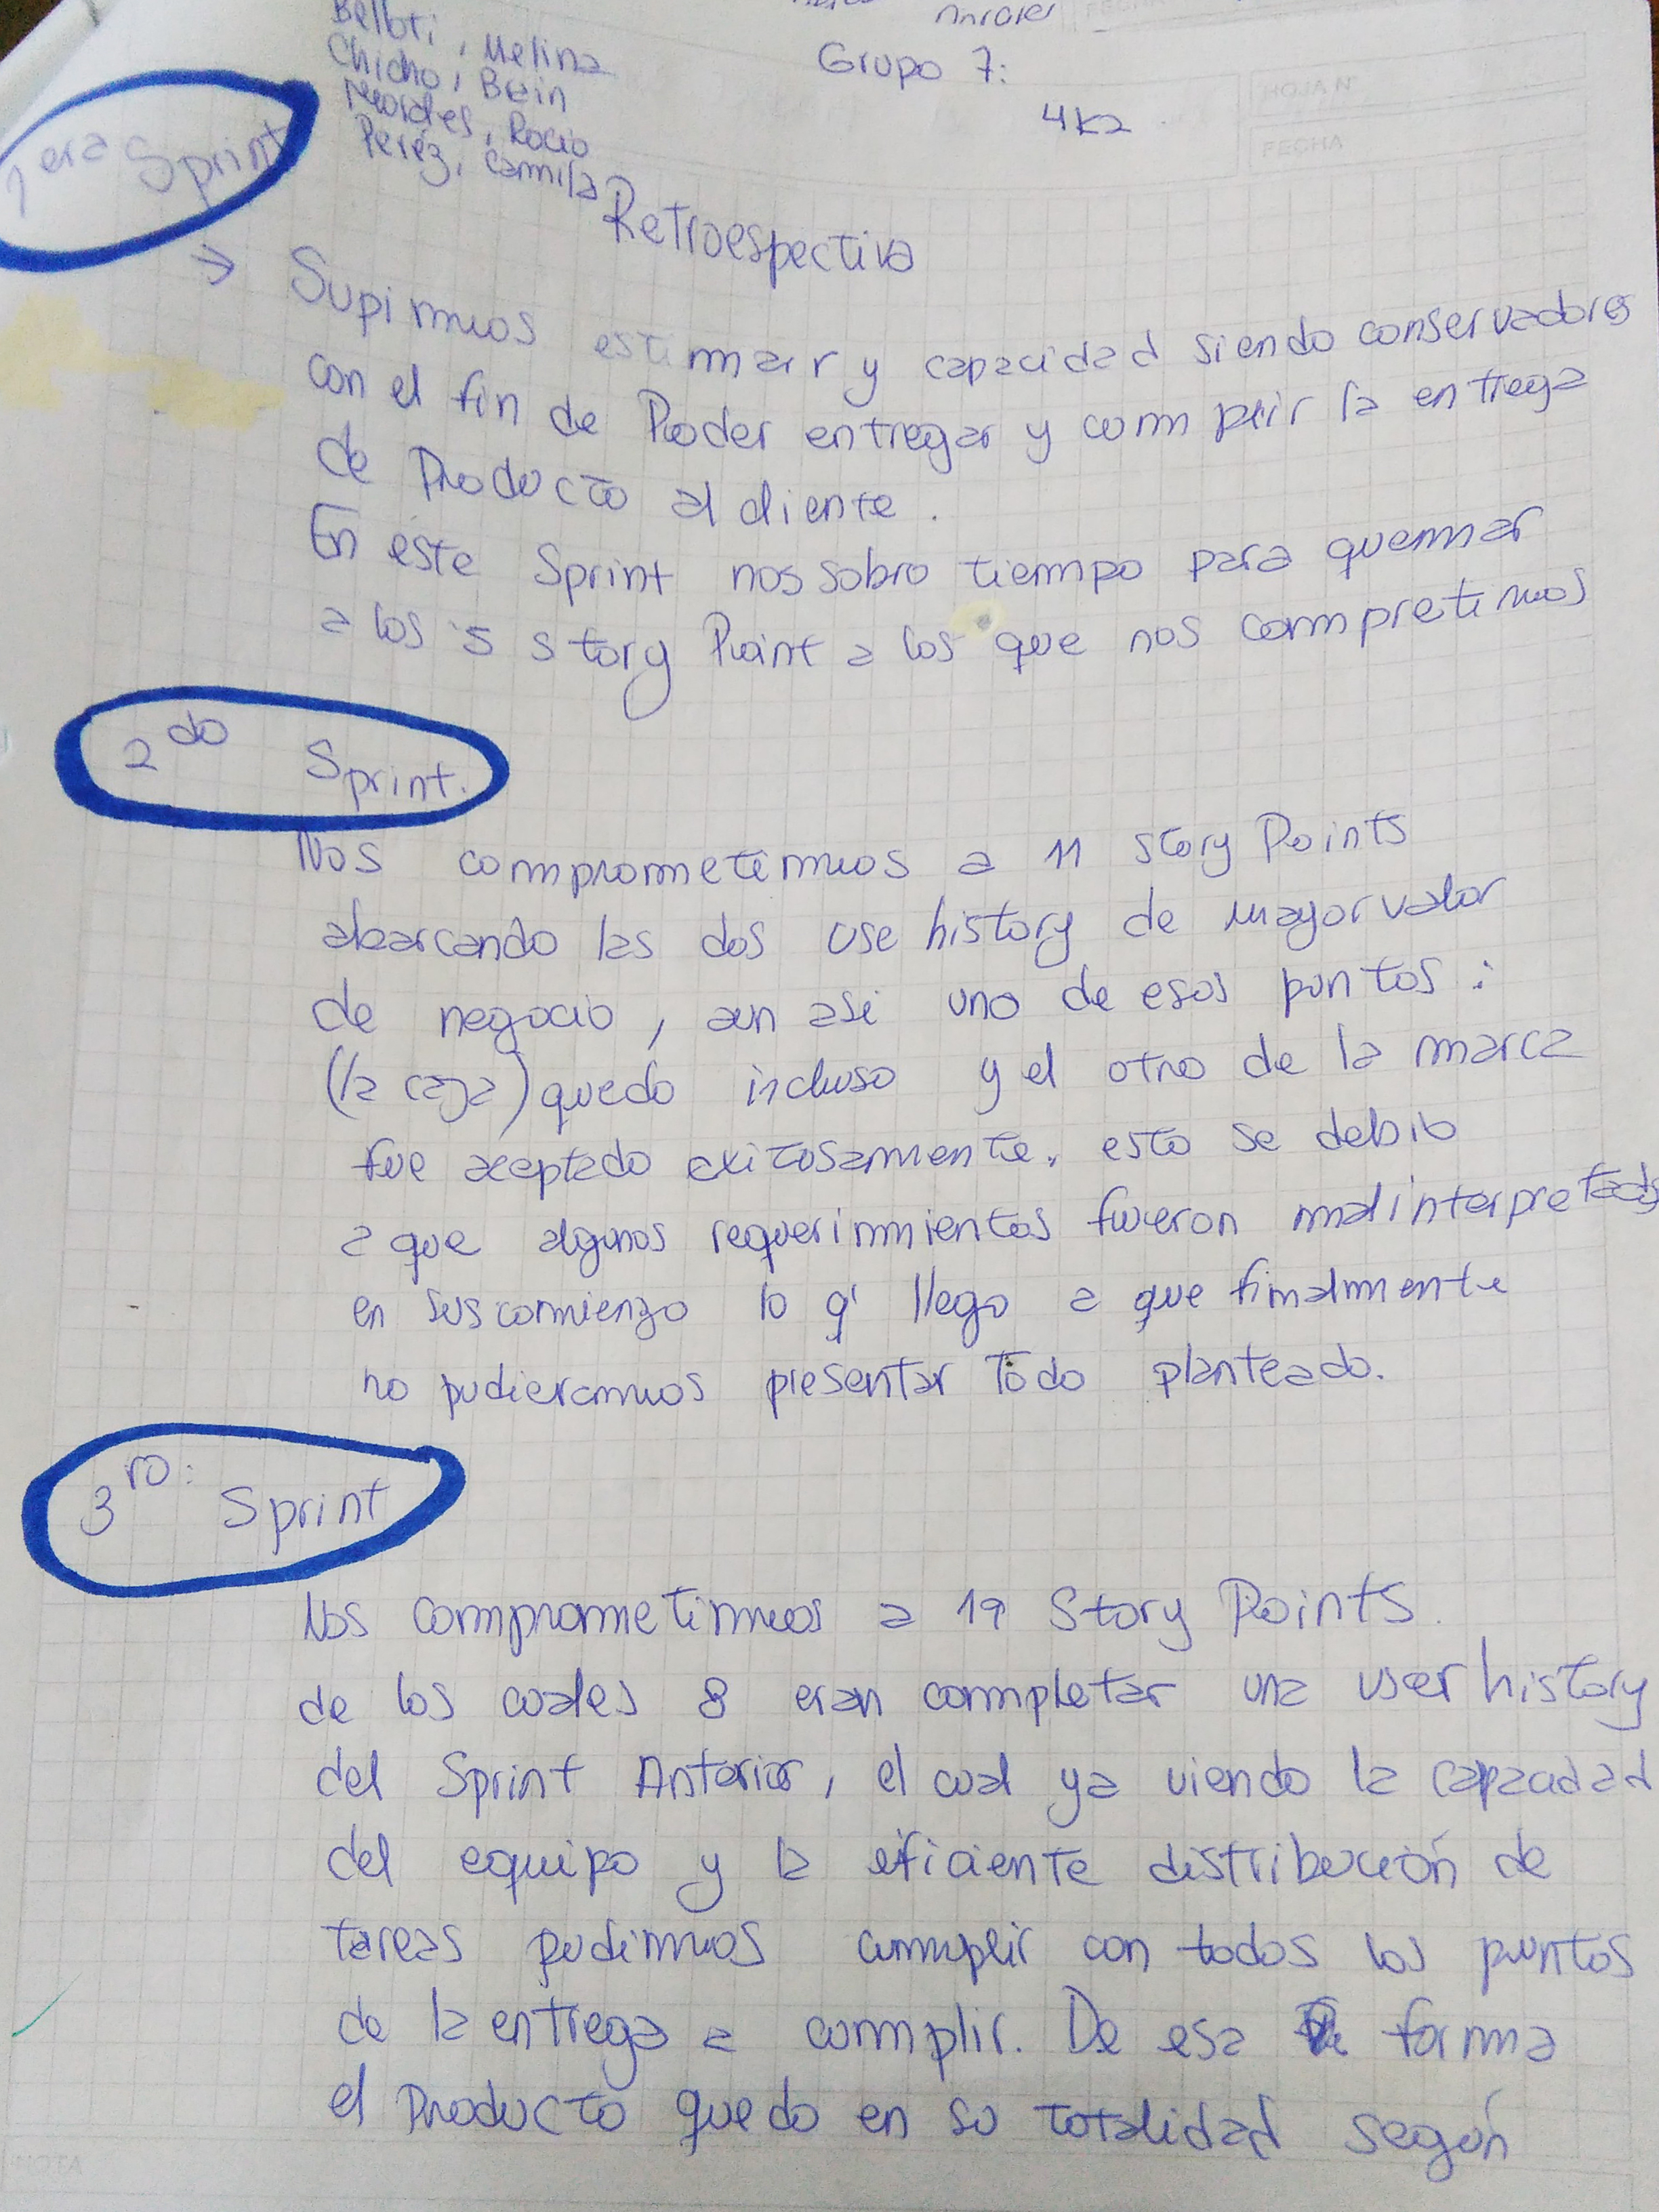 Grupo 7:
4k2
Bellori, Melina
Chicho, Brin
Morales, Rocio
Peréz, Camila
1 era Sprint
Retroespectiva
→ Supimos estimar y capacidad siendo conservadores
con el fin de Poder entregar y complir la entrega
de Producto al cliente.
En este Sprint nos sobro tiempo para quemar
a los 5 story Point a los que nos compretimos
2 do Sprint.
Nos comprometimos a 11 story Points
abarcando las dos use history de mayor valor
de negocio, aun asi uno de esos puntos:
(la caja) quedo incluso y el otro de la marca
fue aceptado exitosamente, esto se debio
a que algunos requerimientos fueron malinterpretados
en sus comienzo lo q' llego a que finalmente
no pudieramos presentar Todo planteado.
3 ro: Sprint
Nos comprometimos a 19 Story Points.
de los cuales 8 eran completar una user history
del Sprint Anterior, el cual ya viendo la capacidad
del equipo y la eficiente distribución de
tareas pudimos cumplir con todos los puntos
de la entrega a complir. De esa forma
el Producto quedo en su totalidad según
HOJA Nº
FECHA